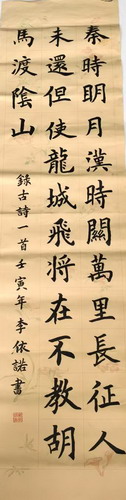 秦時明月漢時關萬里長征人
未還但使龍城飛将在不教胡
馬渡陰山
録古詩一首壬寅年李依諾書